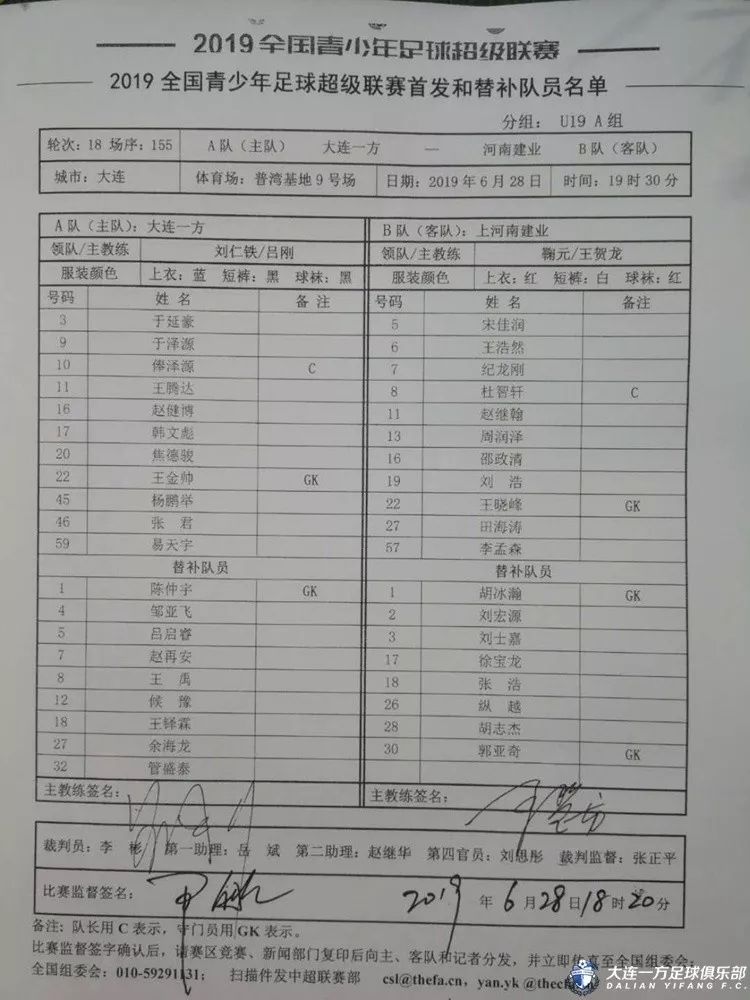 2019全国青少年足球超级联赛
2019 全国青少年足球超级联赛首发和替补队员名单
分组： U19 A 组
轮次：18 场序：155 A 队（主队） 大连一方 — 河南建业 B 队（客队）
城市：大连 体育场：普湾基地 9 号场 日期：2019 年 6 月 28 日 时间：19 时 30 分
A 队（主队）：大连一方 B 队（客队）：上河南建业
领队/主教练 刘仁铁/吕刚 领队/主教练 鞠元/王贺龙
服装颜色 上衣：蓝 短裤：黑 球袜：黑 服装颜色 上衣：红 短裤：白 球袜：红
号码 姓 名 备 注 号码 姓 名 备注
3 于延豪 5 宋佳润
9 于泽源 6 王浩然
10 俸泽源 C 7 纪龙刚
11 王腾达 8 杜智轩 C
16 赵健博 11 赵继翰
17 韩文彪 13 周润泽
20 焦德骏 16 邵政清
22 王金帅 GK 19 刘 浩
45 杨鹏举 22 王晓峰 GK
46 张 君 27 田海涛
59 易天宇 57 李孟森
替补队员 替补队员
1 陈仲宇 GK 1 胡冰瀚 GK
4 邹亚飞 2 刘宏源
5 吕启睿 3 刘士嘉
7 赵再安 17 徐宝龙
8 王 禹 18 张 浩
12 候 豫 26 纵 越
18 王铎霖 28 胡志杰
27 余海龙 30 郭亚奇 GK
32 管盛泰
主教练签名： 主教练签名：
裁判员：李 彬 第一助理：岳 斌 第二助理：赵继华 第四官员：刘思彤 裁判监督：张正平
比赛监督签名： 2019 年 6 月 28 日 18 时 20 分
备注：队长用 C 表示，守门员用 GK 表示。
比赛监督签字确认后，请赛区竞赛、新闻部门复印后向主、客队和记者分发，并立即传真至全国组委会；
全国组委会：010-59291131； 扫描件发中超联赛部 csl@thefa.cn，yan.yk @thecfa.cn
大连一方足球俱乐部
DALIAN YIFANG F.C.